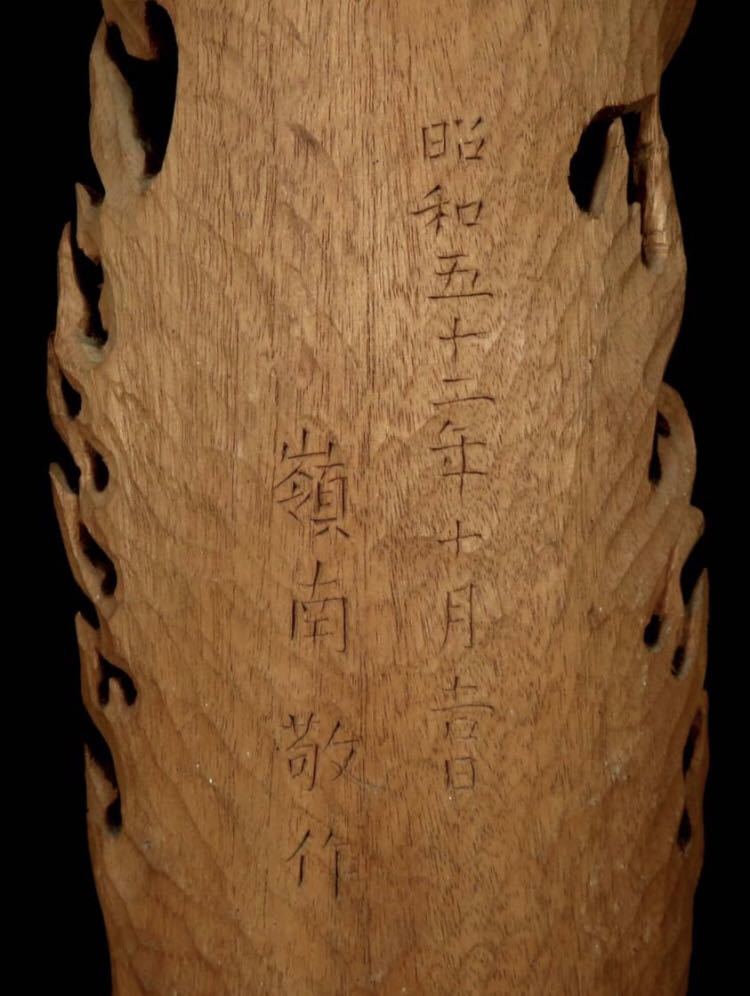 昭和五十二年十月吉日
嶺南敬作